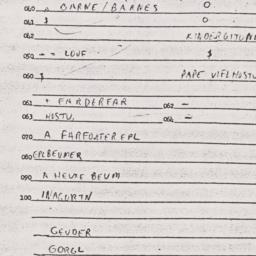 040 ^ BARNE/BARNES O
041 $ O
042 KINDERGITUNE
050 - - LOVE $
060 $ PAPE VIELMOSTU
061 + FARDERFAR 062 -
063 MOSTU. 064 -
070 A FARFOATER EPL
080 EPLBEUMER
090 A HEUTE BEUM
100 INAGORTN
GEUDER
GORGL